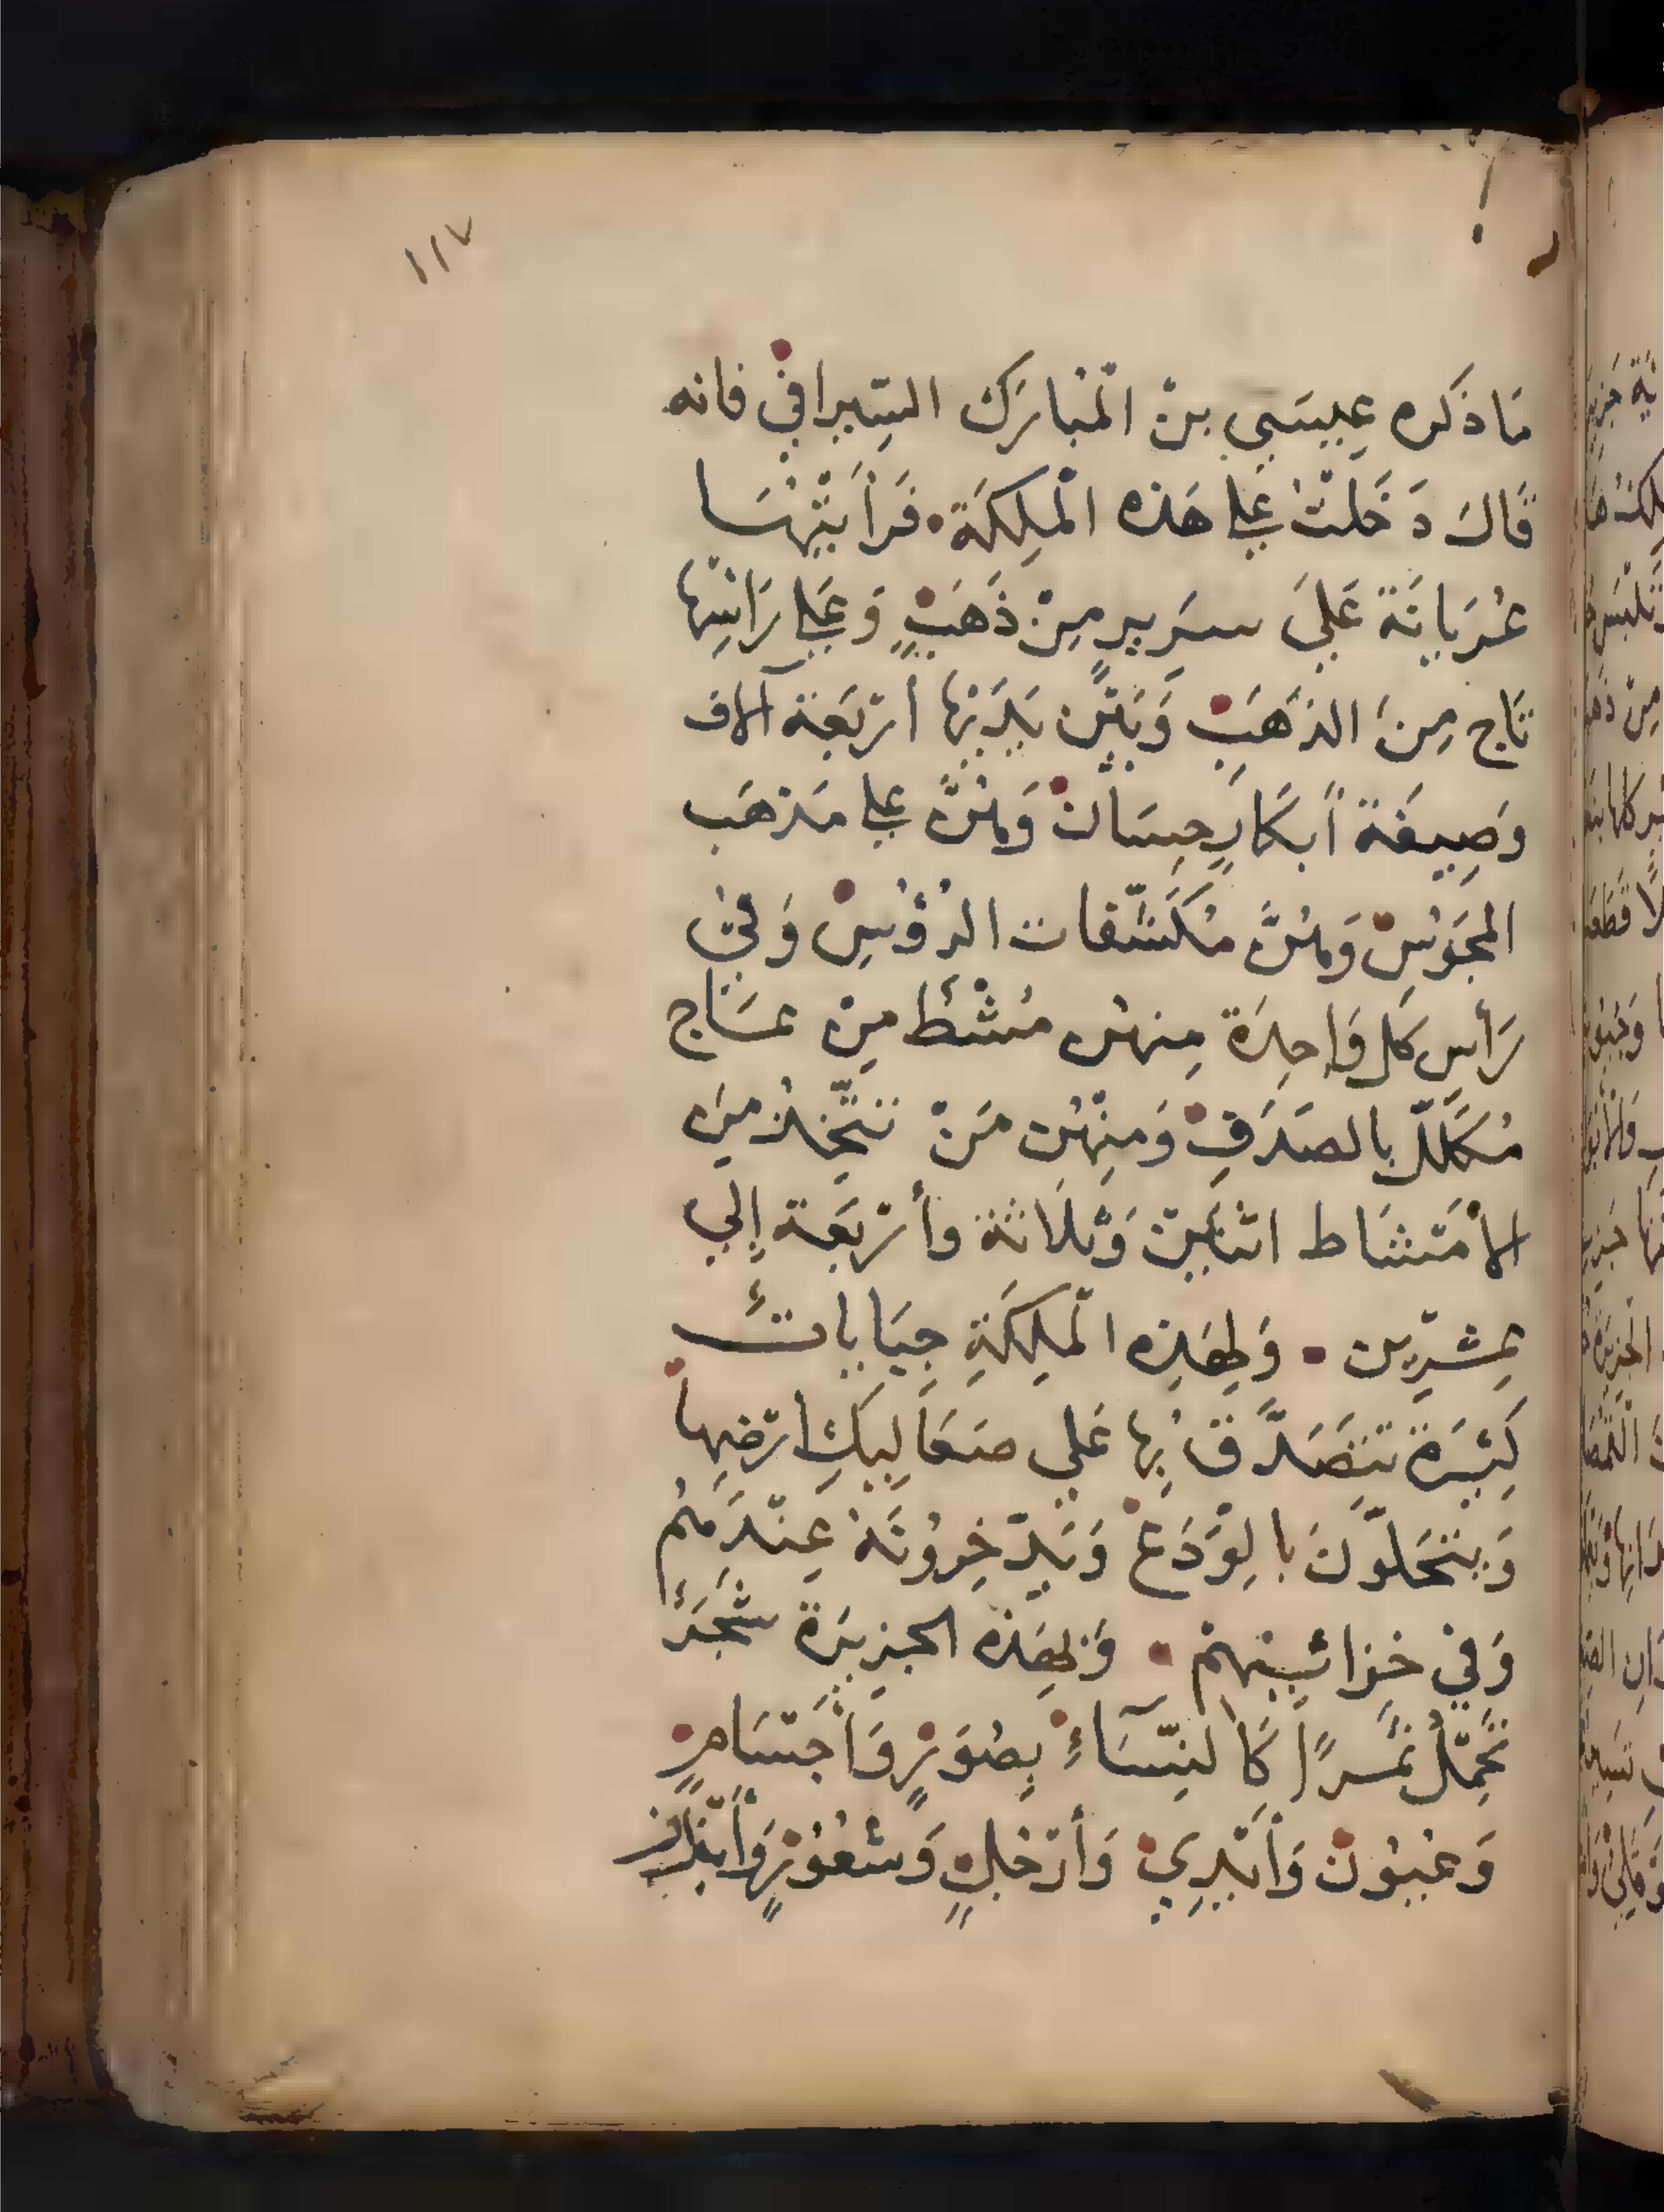 ١١٧
مَا ذَكَره عِيسَي بنْ الْمُبارَكْ السِّيرافيْ فانه
قَالَ دَخَلتُ عَلي هَذه الْمَلِكَة فَرَأيتُهَا
عُريَانَة عَليَ سَرِيرٍ مِنْ ذَهَبٍ وَعَلي رَاسِها
تَاج مِنَ الذهَبِ وَبَيْن يَديْها أربَعة آلاف
وَصِيفَة أبكَارٍ حِسَان وَهُنَّ علي مَذهَب
المجَوُسِ وَهُنَّ مُكَشَّفات الرُؤُسِ وَفي
رَأسِ كل وَاحِدَة مِنهن مُشْط مِن عَاج
مُكلّل بالصَدَفِ وَمِنْهُن مَنْ تتّخِذ مِن
الأمشَاط اثنَين وَثلَاثة وأربَعة إلي
عِشرِين وَلِهَذِه الْمَلِكَةِ جِبَابات
كَثِيرَة تتصَدّق بها عَلي صَعَاليكِ ارضِها
وَيتحَلّونَ بالوَدَع وَيَدّخِرُونَهُ عِنْدَهُم
وَفي خزائِنِهِمْ وَلِهَذه الجزِيرَة شَجَرٌ
تحْمِلُ ثمرًا كالنِسَاءِ بِصُوَرٍ وَأجسَامٍ
وَعُيُون وَأيْدِيْ وَأرْجُلٍ وَشعُوُرٍ